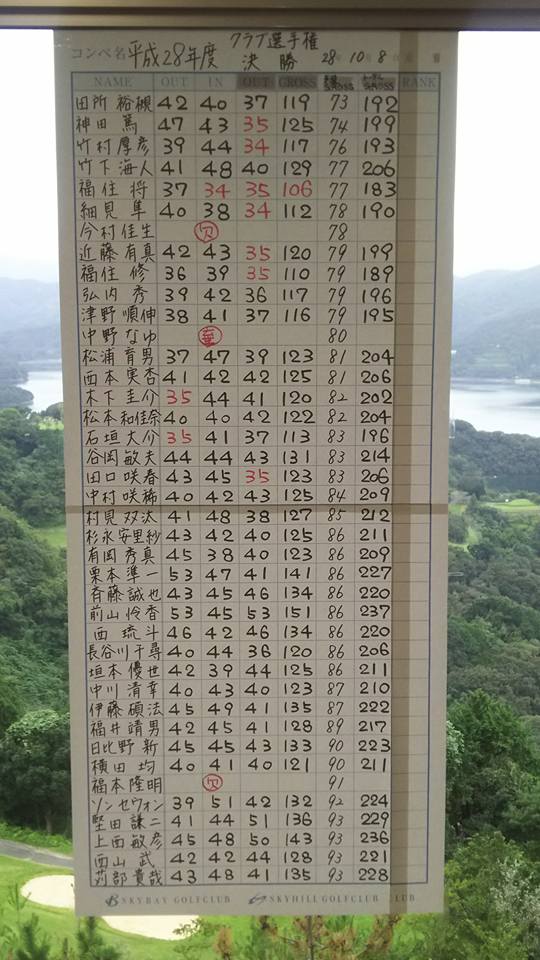 コンペ名 平成28年度 クラブ選手権 決勝 28年 10月 8日
NAME OUT IN OUT GROSS GROSS GROSS RANK
田所 裕槻 42 40 37 119 73 192
神田 篤 47 43 35 125 74 199
竹村厚彦 39 44 34 117 76 193
竹下海人 41 48 40 129 77 206
福住 将 37 34 35 106 77 183
細見 隼 40 38 34 112 78 190
今村佳生 欠 78
近藤有真 42 43 35 120 79 199
福住 修 36 39 35 110 79 189
弘内 秀 39 42 36 117 79 196
津野順伸 38 41 37 116 79 195
中野なゆ 棄 80
松浦育男 37 47 39 123 81 204
西本実杏 41 42 42 125 81 206
木下圭介 35 44 41 120 82 202
松本和佳奈 40 40 42 122 82 204
石垣大介 35 41 37 113 83 196
谷岡敏夫 44 44 43 131 83 214
田口咲春 43 45 35 123 83 206
中村咲稀 40 42 43 125 84 209
村見双汰 41 48 38 127 85 212
杉永安里紗 43 42 40 125 86 211
有岡秀真 45 38 40 123 86 209
栗本準一 53 47 41 141 86 227
斉藤誠也 43 45 46 134 86 220
前山怜香 53 45 53 151 86 237
西 琉斗 46 42 46 134 86 220
長谷川千尋 40 44 36 120 86 206
垣本優世 42 39 44 125 86 211
中川清幸 40 43 40 123 87 210
伊藤碩法 45 49 41 135 87 222
福井靖男 42 45 41 128 89 217
日比野新 45 45 43 133 90 223
横田 均 40 41 40 121 90 211
福本隆明 欠 91
ソンセウォン 39 51 42 132 92 224
堅田謙二 41 44 51 136 93 229
上西敏彦 45 48 50 143 93 236
西山 武 42 42 44 128 93 221
苅部貴哉 43 48 41 135 93 228
SKYBAY GOLFCLUB SKYHILL GOLFCLUB CLUB